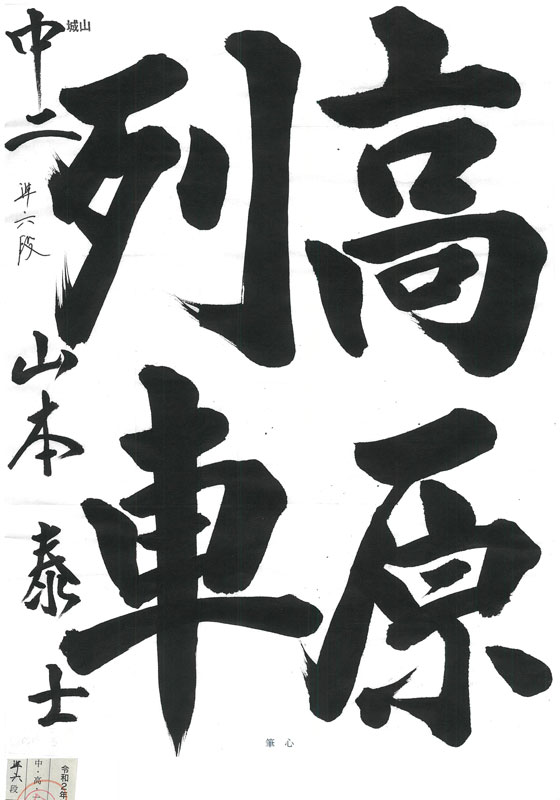 高原
列車
城山
中二
準六段
山本泰士
心筆
令和2年
中・高・
準六段